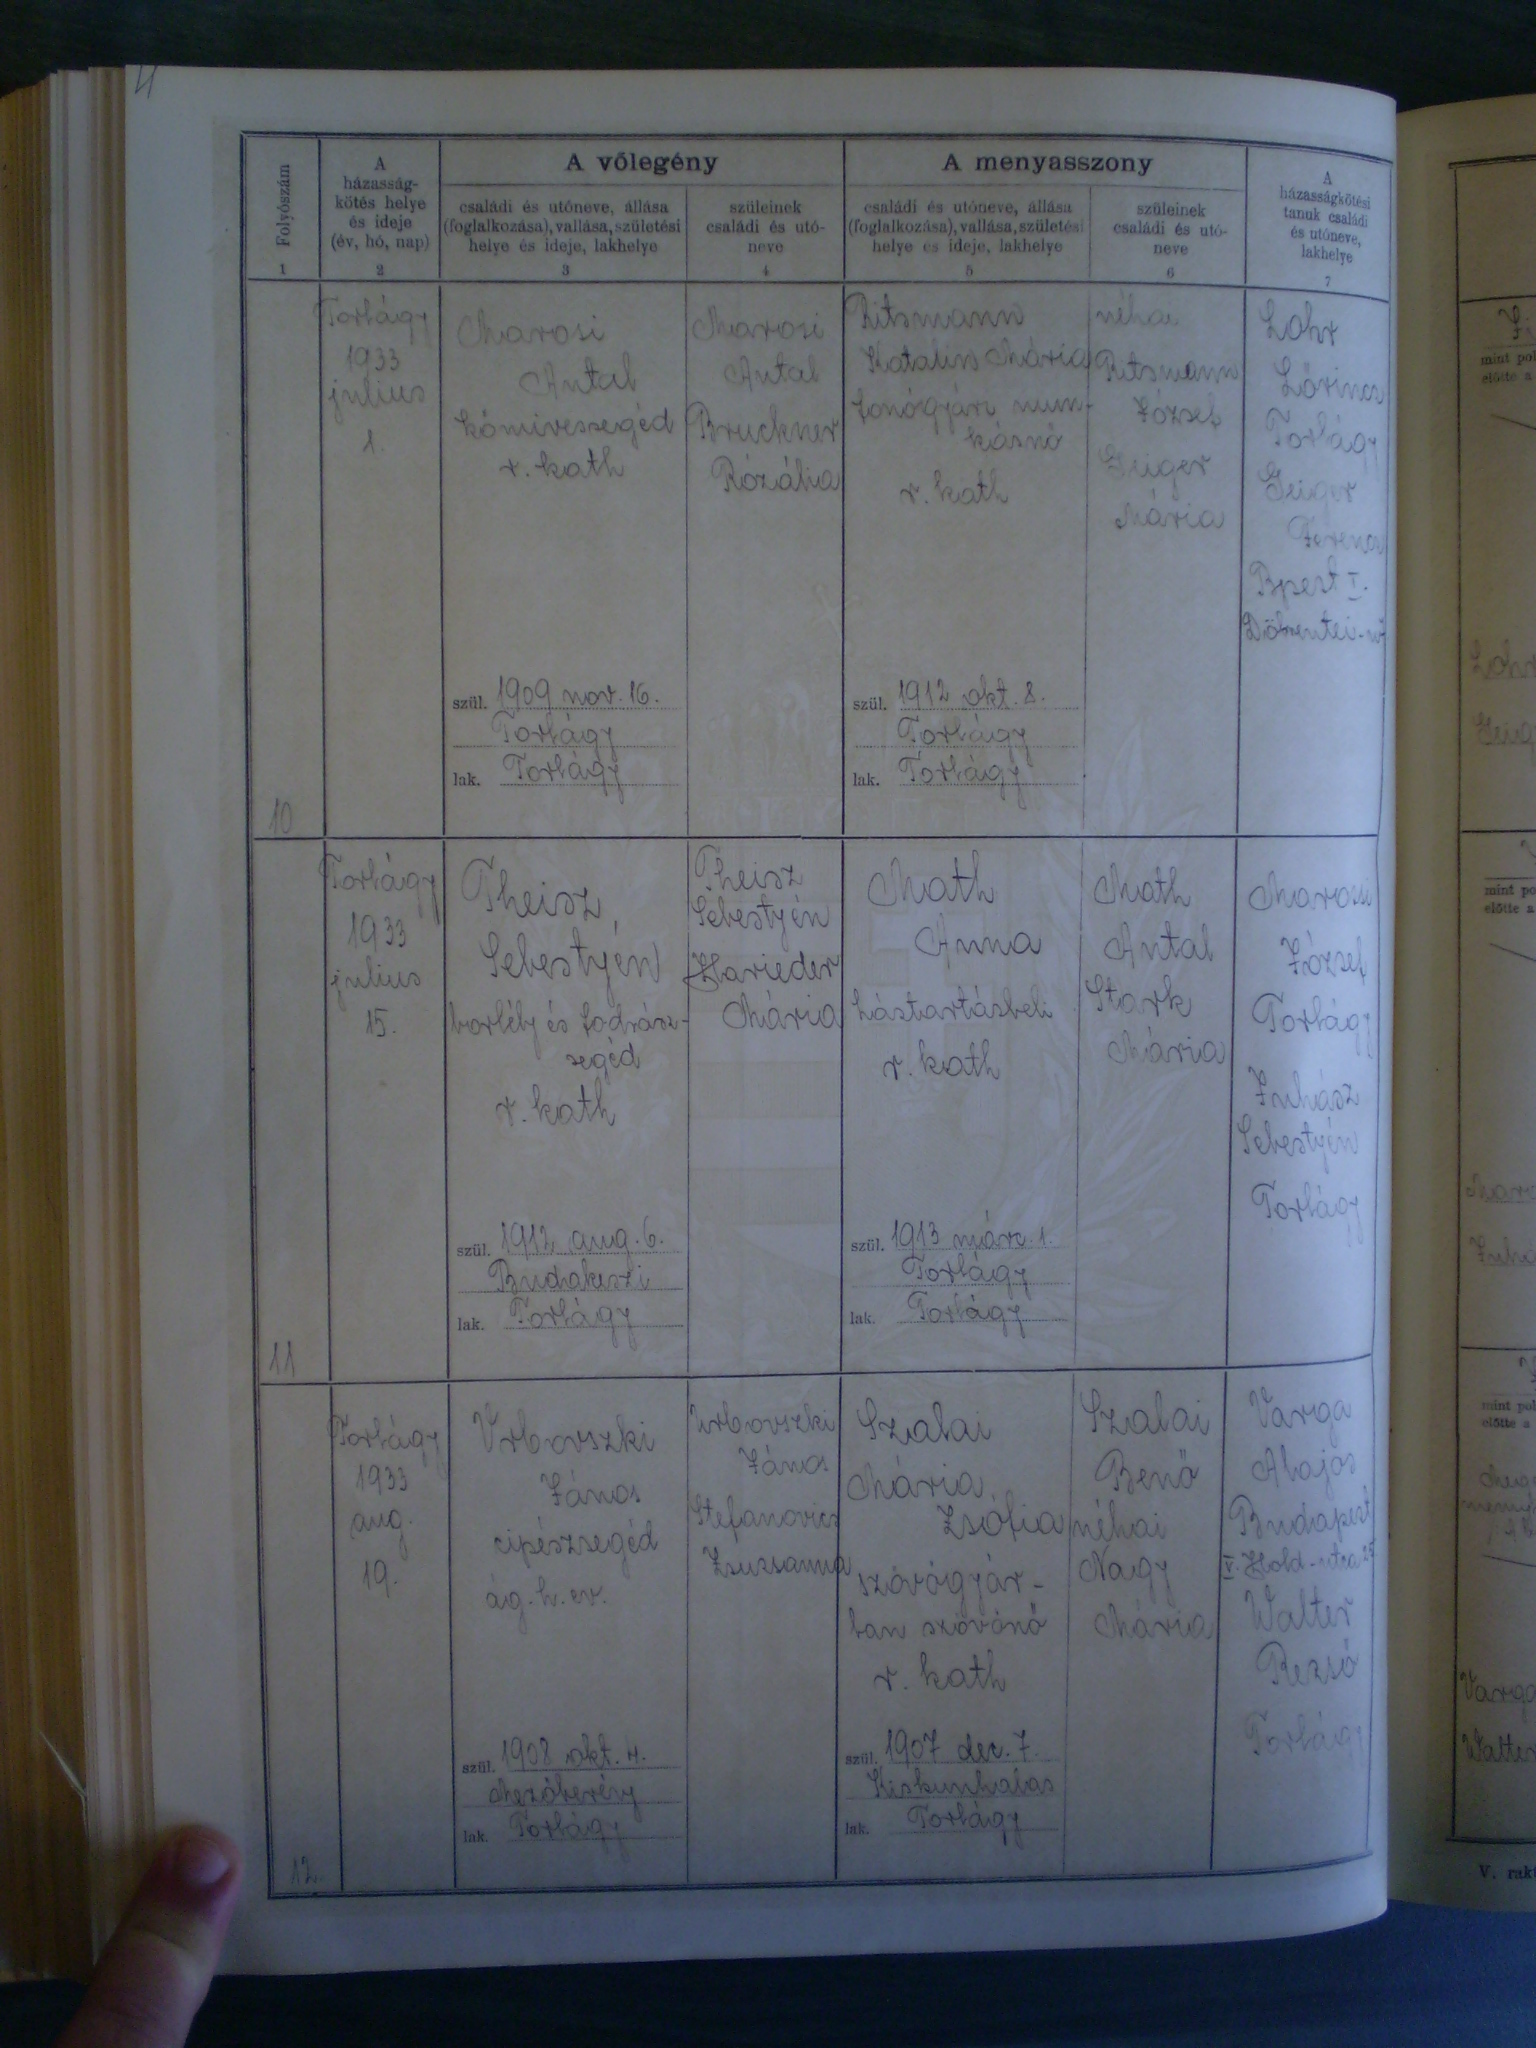 4
Folyószám
1
A
házasság-
kötés helye
és ideje
(év, hó, nap)
2
A vőlegény
családi és utóneve, állása
(foglalkozása), vallása, születési
helye és ideje, lakhelye
3
szüleinek
családi és utó-
neve
4
A menyasszony
családi és utóneve, állása
(foglalkozása), vallása, születési
helye és ideje, lakhelye
5
szüleinek
családi és utó-
neve
6
A
házasságkötési
tanuk családi
és utóneve,
lakhelye
7
10
Torbágy
1933
julius
1.
Marosi
Antal
kőmivessegéd
r. kath
szül. 1909 nov. 16.
Torbágy
lak. Torbágy
Marosi
Antal
Bruckner
Rozália
Ritsmann
Katalin Mária
fonógyári mun-
kásnő
r. kath
szül. 1912 okt. 8.
Torbágy
lak. Torbágy
néhai
Ritsmann
József
Geiger
Mária
Lohr
Lőrincz
Torbágy
Geiger
Ferenc
Bpest I.
Döbrentei-u
11
Torbágy
1933
julius
15.
Theisz
Sebestyén
borbély és fodrász-
segéd
r. kath
szül. 1912 aug. 6.
Budakeszi
lak. Torbágy
Theisz
Sebestyén
Harieder
Mária
Math
Anna
háztartásbeli
r. kath
szül. 1913 márc. 1.
Torbágy
lak. Torbágy
Math
Antal
Stark
Mária
Marossi
József
Torbágy
Juhász
Sebestyén
Torbágy
12.
Torbágy
1933
aug.
19.
Vrbovszki
János
cipészsegéd
ág. h. ev.
szül. 1908 okt. 4.
Mezőberény
lak. Torbágy
Urbovszki
János
Stefanovics
Zsuzsanna
Szalai
Mária
Zsófia
szövőgyár-
ban szövőnő
r. kath
szül. 1907 dec. 7.
Kiskunhalas
lak. Torbágy
Szalai
Benő
néhai
Nagy
Mária
Varga
Alajos
Budapest
V. Hold-utca 25
Walter
Rezső
Torbágy
mint pol
előtte a
Lohr
Geig
mint po
előtte a
Juhá
mint pol
előtte a
Varga
Walter
V. rak